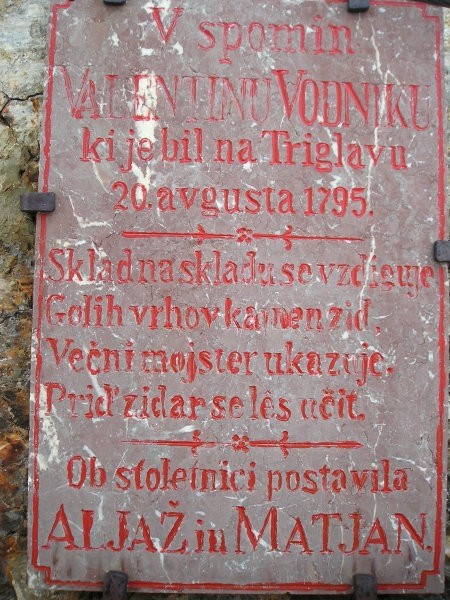 V spomin
VALENTINU VODNIKU
ki je bil na Triglavu
20. avgusta 1795.
Sklad na skladu se vzdiguje
Golih vrhov kamen zid,
Večni mojster ukazuje,
Prid' zidar se lès učit.
Ob stoletnici postavila
ALJAŽ in MATJAN.